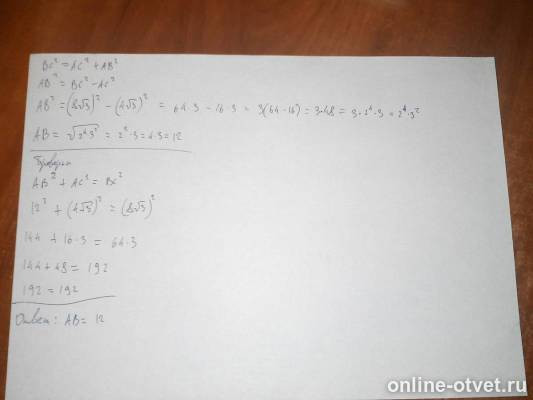 BC² = AC² + AB²
AB² = BC² - AC²
AB² = (8√3)² - (4√3)² = 64·3 - 16·3 = 3(64-16) = 3·48 = 3·2⁴·3 = 2⁴·3²
AB = √2⁴3² = 2²·3 = 4·3 = 12
Проверка
AB² + AC² = BC²
12² + (4√3)² = (8√3)²
144 + 16·3 = 64·3
144 + 48 = 192
192 = 192
Ответ: AB = 12
online-otvet.ru